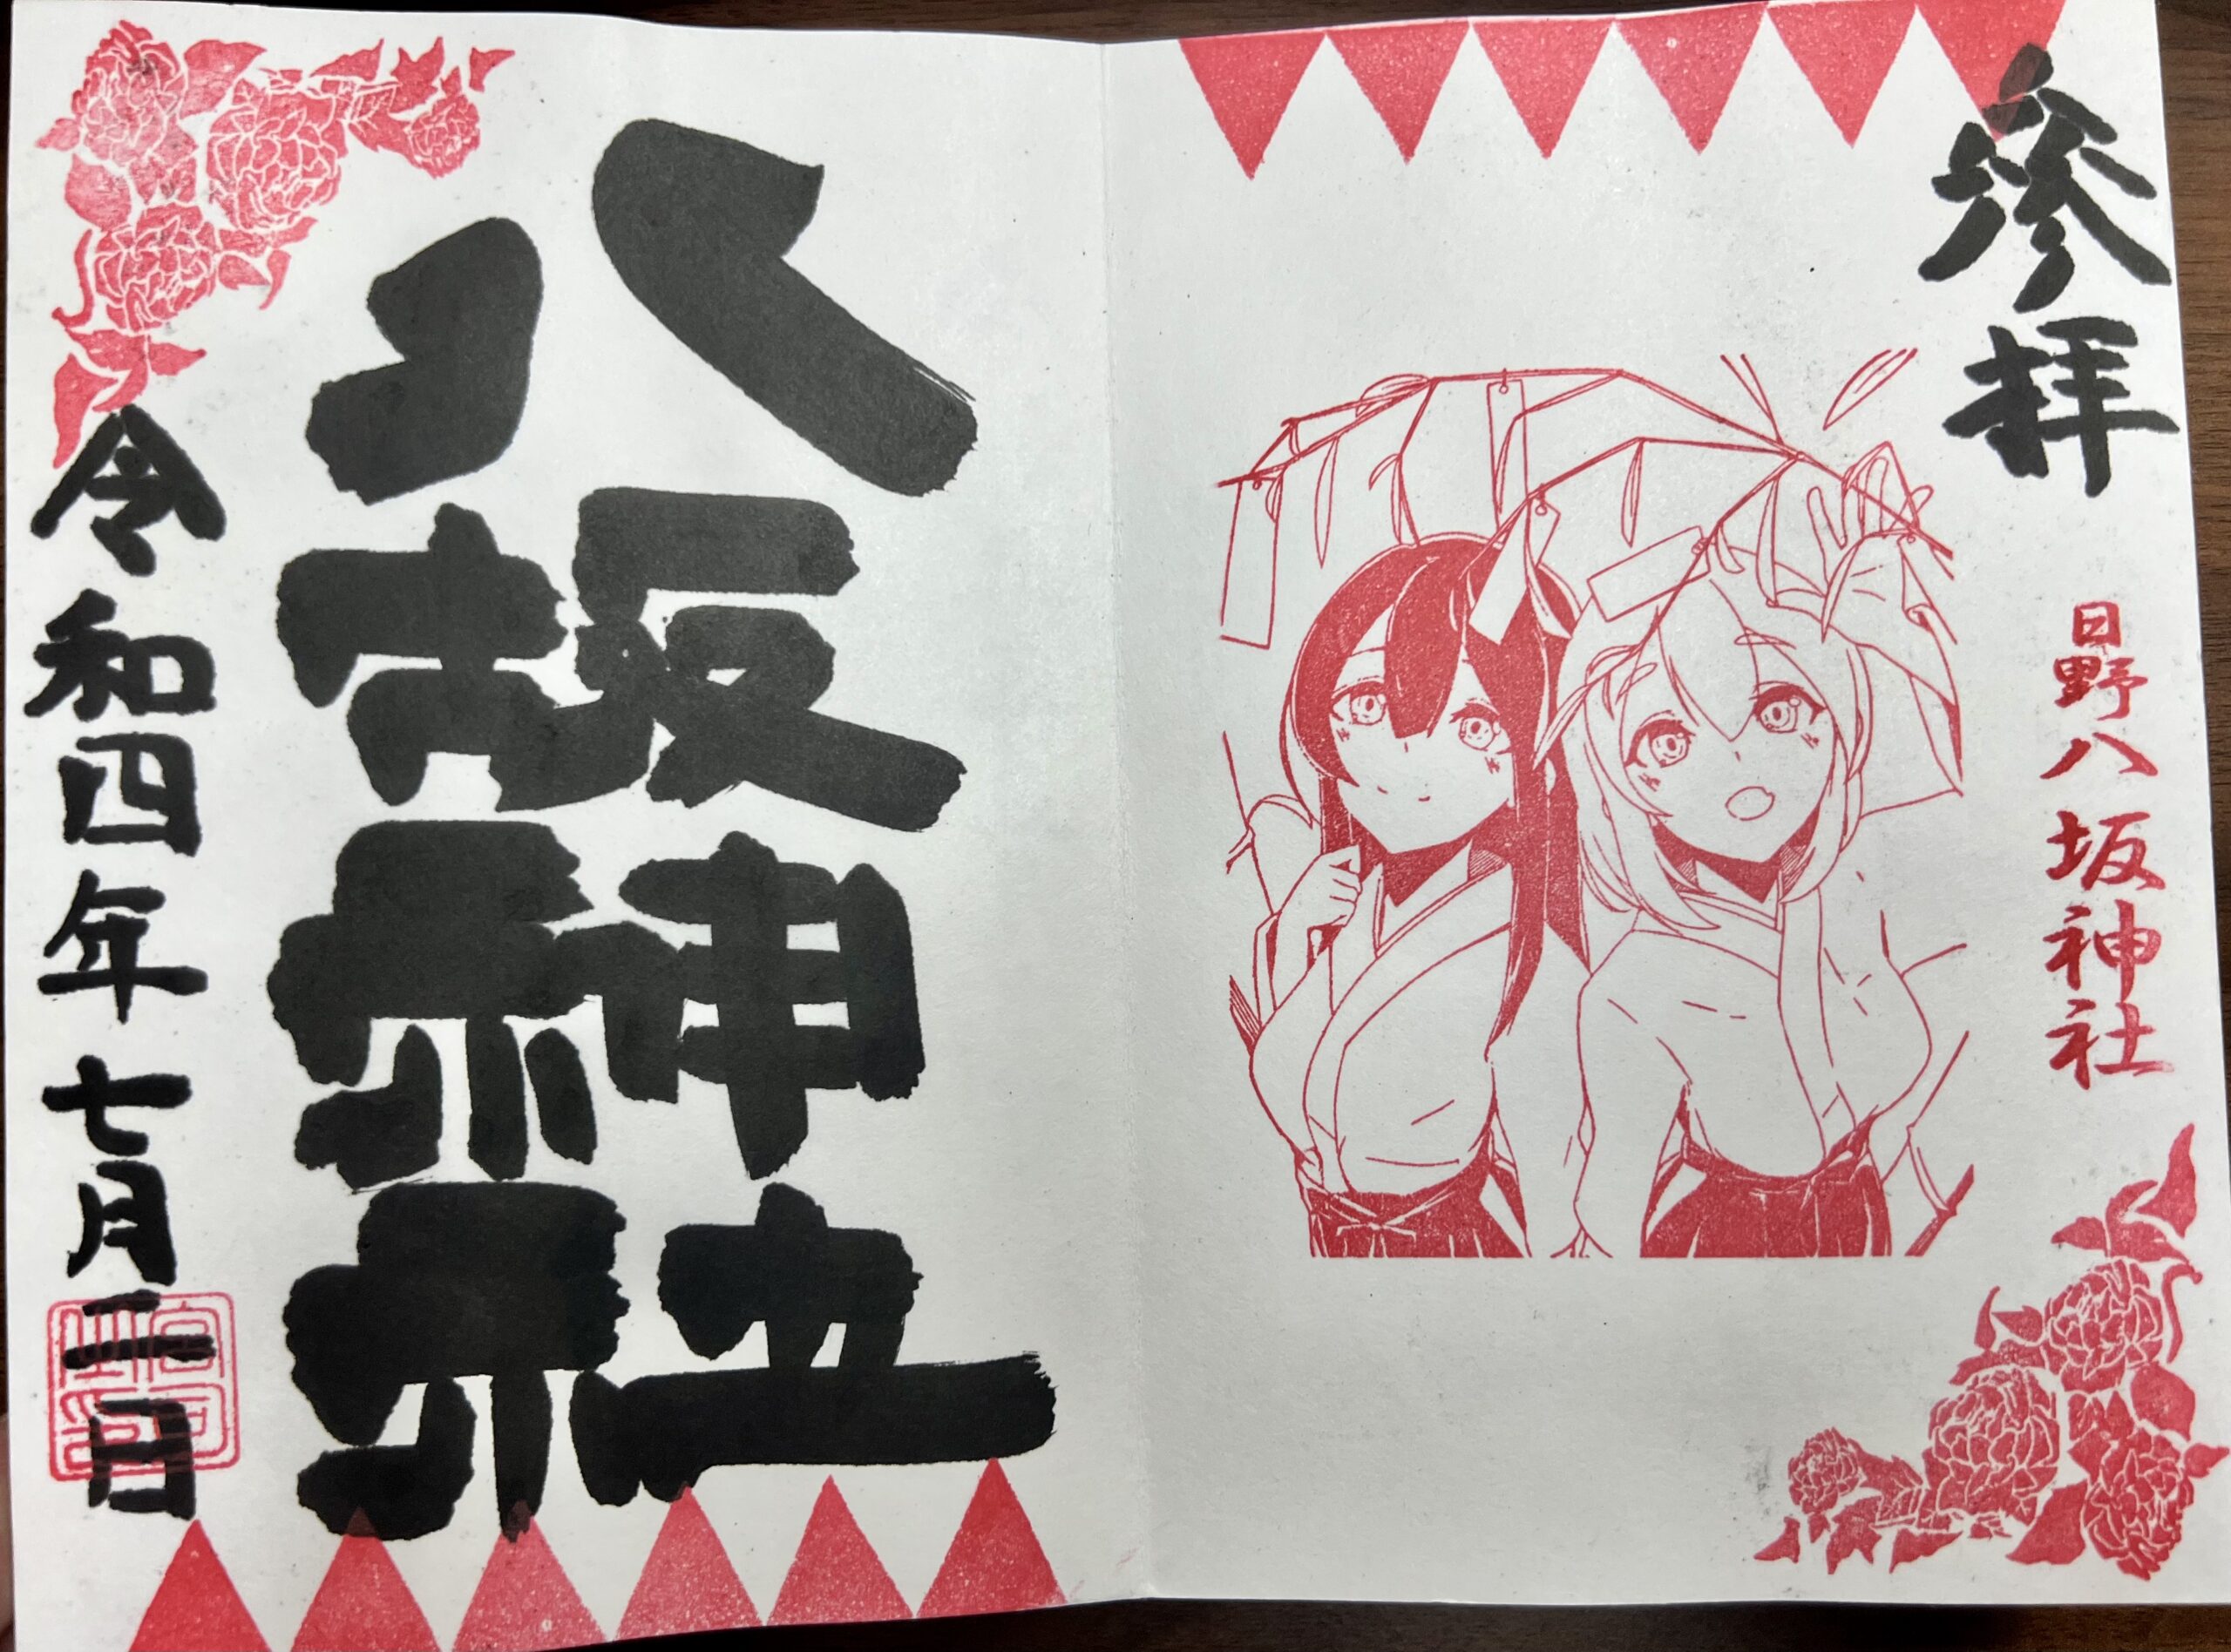 参拝
日野八坂神社
八坂神社
令和四年七月二日